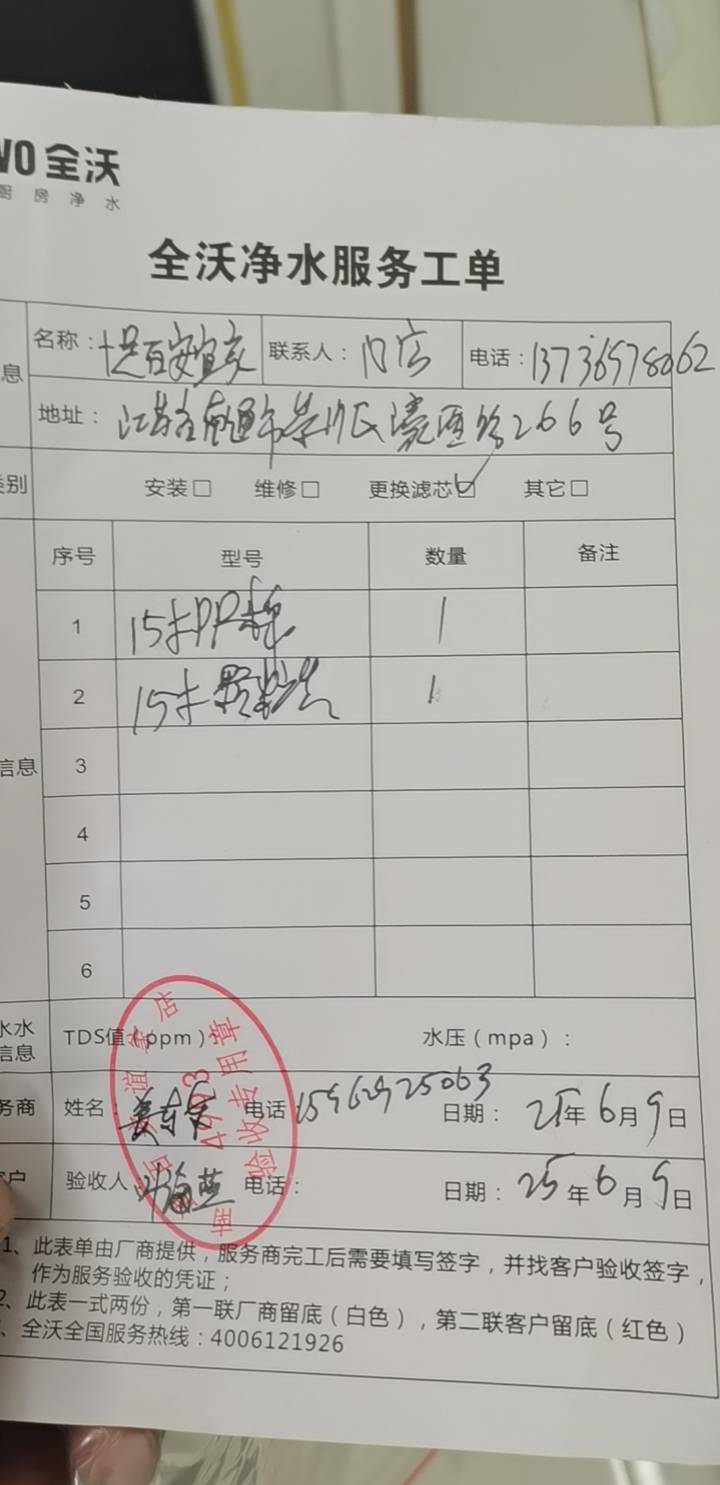 VO 全沃
厨房净水
全沃净水服务工单
息
名称： 联系人：门店 电话：13736978062
地址：江苏省南通市崇川区濠西路266号
类别 安装□ 维修□ 更换滤芯☑ 其它□
序号 型号 数量 备注
1 15寸PP棉 1
2 15寸颗粒炭 1
信息 3
4
5
6
水水
信息 TDS值（ppm）： 水压（mpa）：
务商 姓名： 电话 15962925063 日期：25年6月9日
客户 验收人： 电话： 日期：25年6月9日
1、此表单由厂商提供，服务商完工后需要填写签字，并找客户验收签字，
作为服务验收的凭证；
2、此表一式两份，第一联厂商留底（白色），第二联客户留底（红色）
、全沃全国服务热线：4006121926
4903
验收专用章